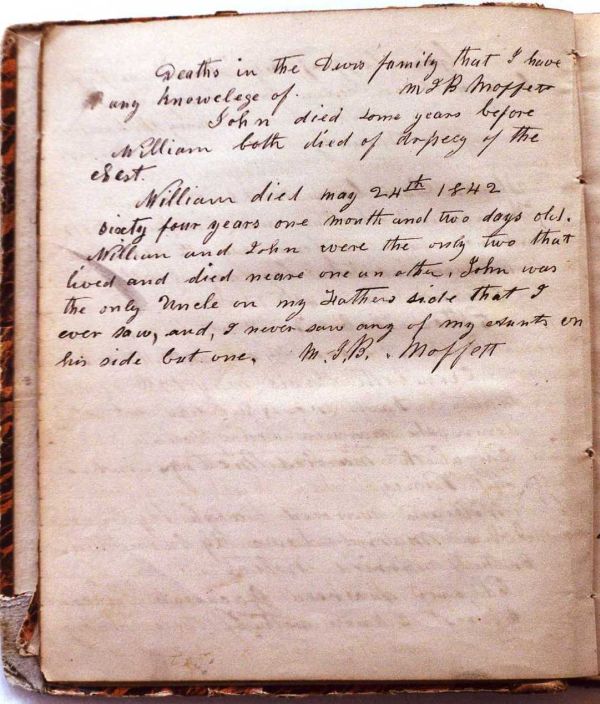 Deaths in the Davis family that I have
any knowelege of. M J B Moffett
John died some years before
William both died of dropsecy of the
chest.
William died may 24th 1842
sixty four years one month and two days old.
William and John were the only two that
lived and died neare one an other, John was
the only Uncle on my Fathers side that I
ever saw, and, I never saw any of my aunts on
his side but one. M. J. B. Moffett